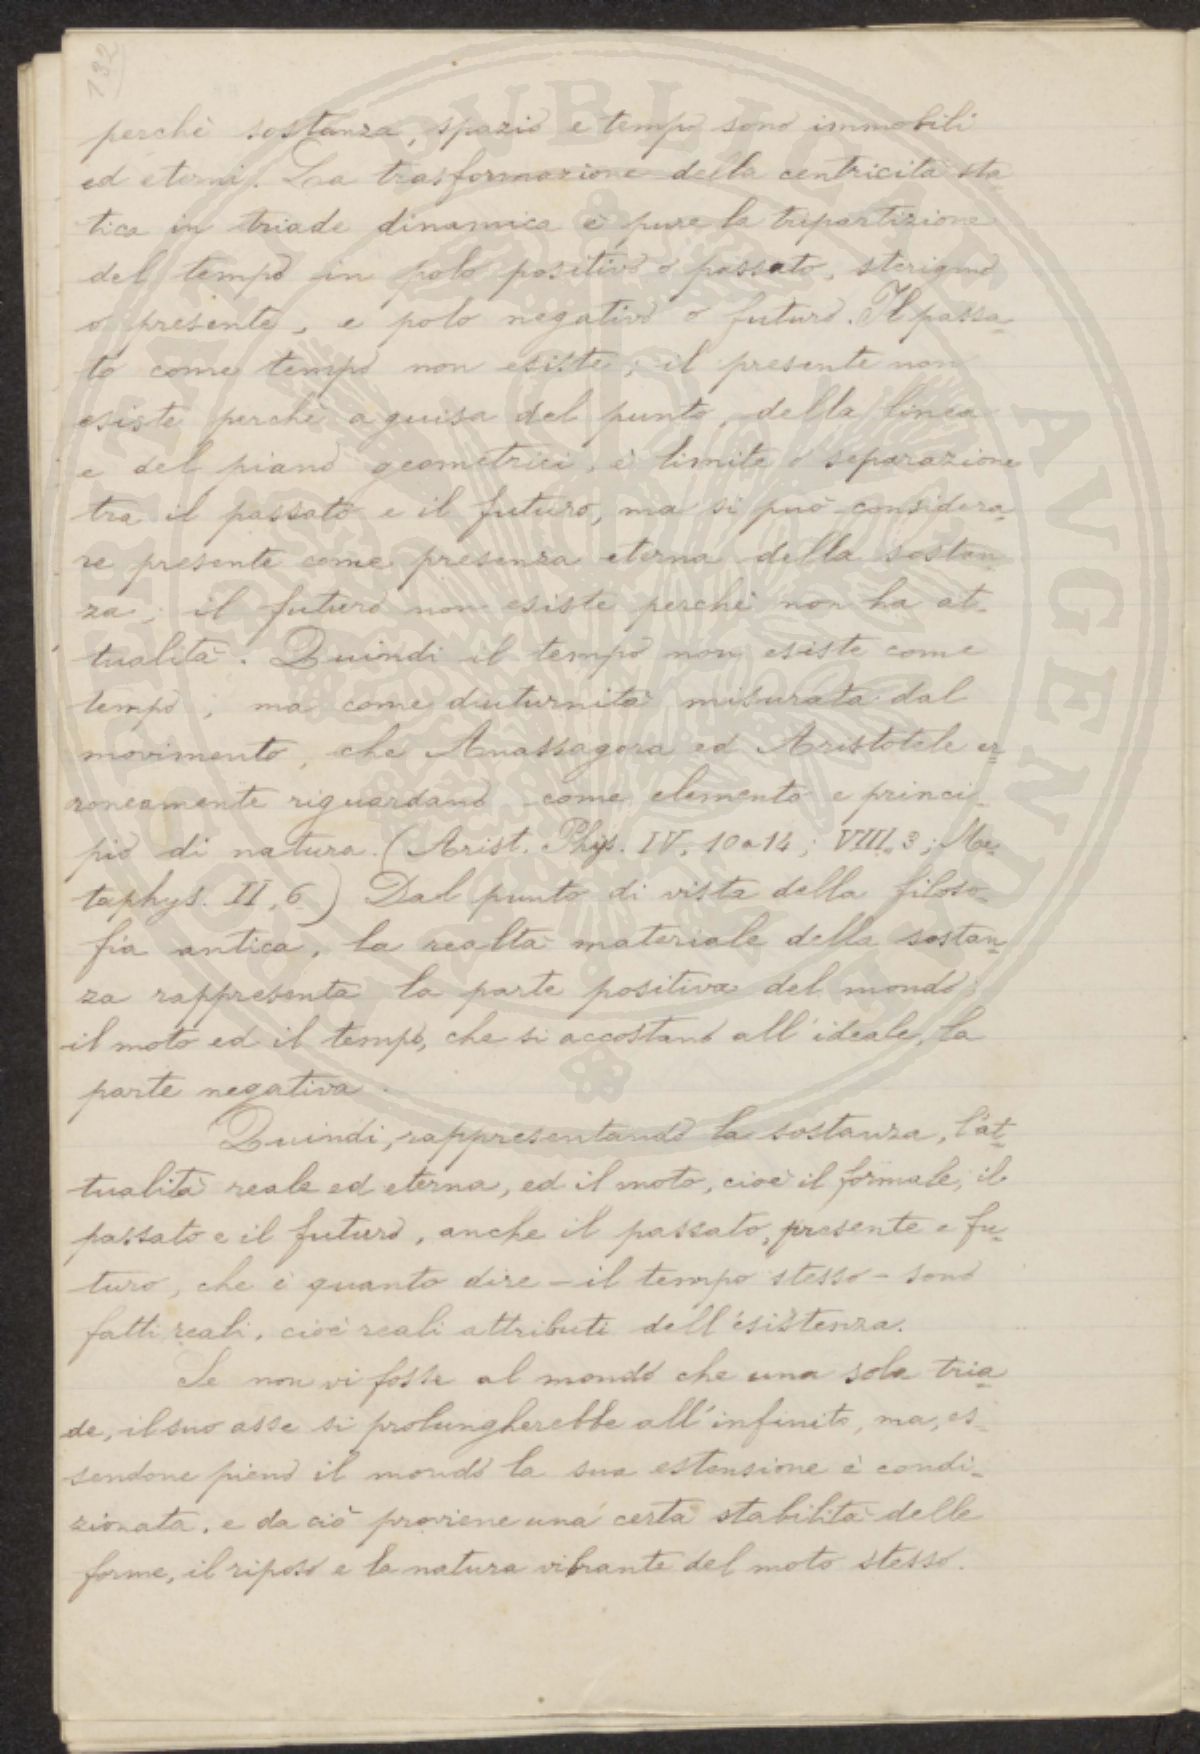 132
perchè sostanza, spazio e tempo sono immobili
ed eterni. La trasformazione della centricità sta-
tica in triade dinamica è pure la tripartizione
del tempo in polo positivo o passato, sterigmo
o presente, e polo negativo o futuro. Il passa-
to come tempo non esiste; il presente non
esiste perchè a guisa del punto, della linea
e del piano geometrici, è limite o separazione
tra il passato e il futuro, ma si può considera-
re presente come presenza eterna della sostan-
za; il futuro non esiste perchè non ha at-
tualità. Quindi il tempo non esiste come
tempo, ma come diuturnità misurata dal
movimento, che Anassagora ed Aristotele er-
roneamente riguardano come elemento e princi-
pio di natura. (Arist. Phys. IV, 10 a 14; VIII, 3; Me-
taphys. II, 6) Dal punto di vista della filoso-
fia antica, la realtà materiale della sostan-
za rappresenta la parte positiva del mondo;
il moto ed il tempo, che si accostano all'ideale, la
parte negativa.
Quindi, rappresentando la sostanza, l'at-
tualità reale ed eterna, ed il moto, cioè il formale, il
passato e il futuro, anche il passato, presente e fu-
turo, che è quanto dire – il tempo stesso – sono
fatti reali, cioè reali attributi dell'esistenza.
Se non vi fosse al mondo che una sola tria-
de, il suo asse si prolungherebbe all'infinito, ma, es-
sendone pieno il mondo la sua estensione è condi-
zionata, e da ciò proviene una certa stabilità delle
forme, il riposo e la natura vibrante del moto stesso.